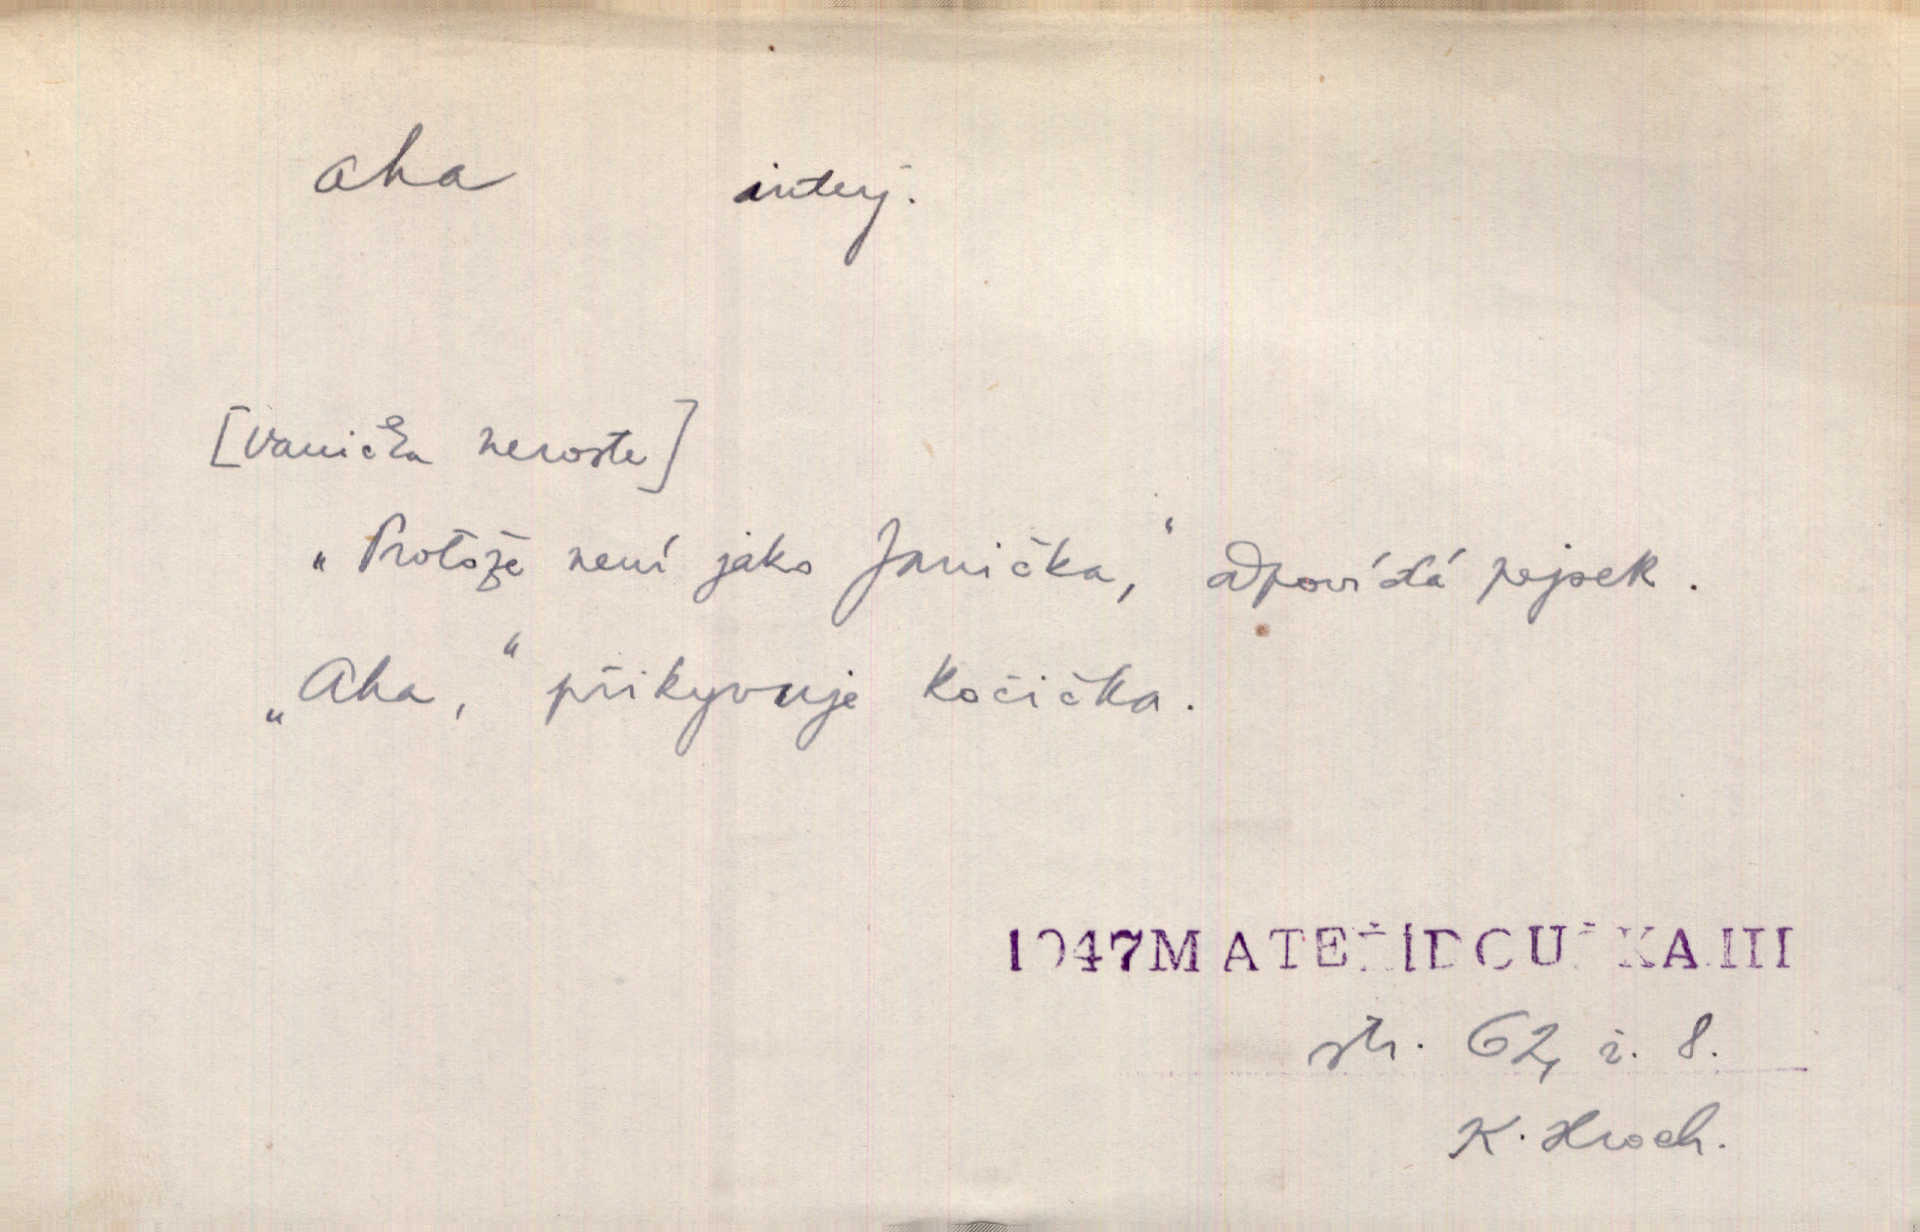 aha interj.
[vanička neroste]
„Protože není jako Janička,“ odpovídá pejsek.
„Aha,“ přikyvuje kočička.
1947 MATEŘÍDOUŠKA III
str. 62, č. 8.
K. Hroch.